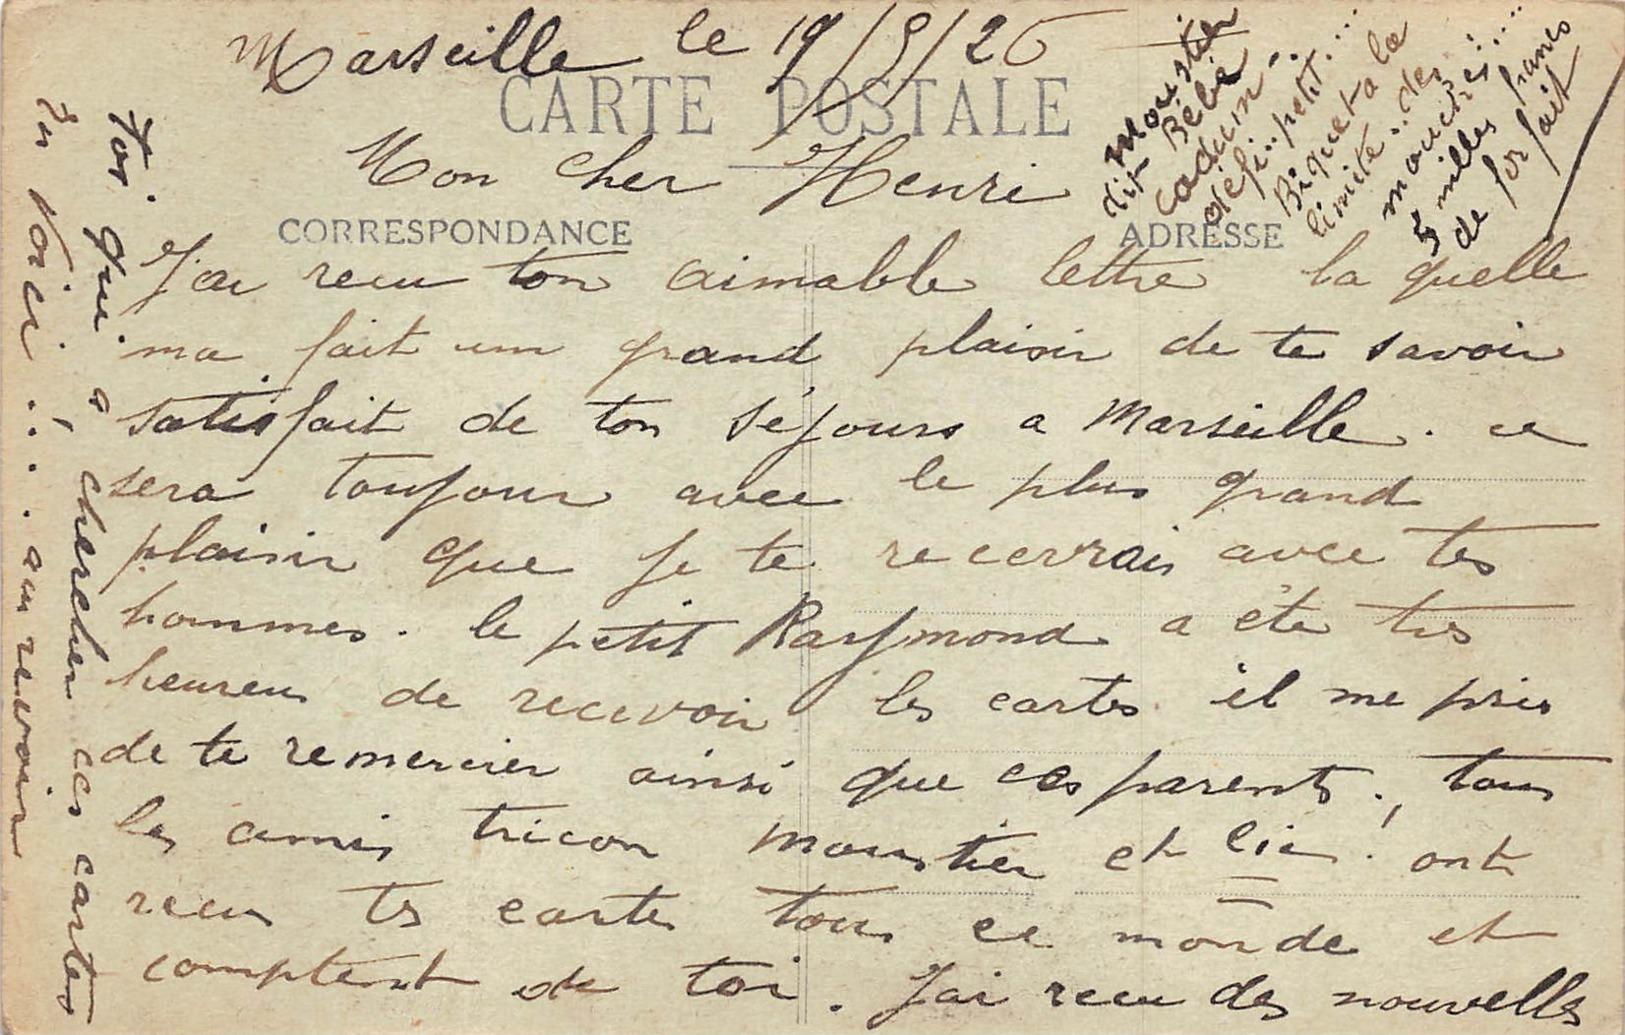 Marseille le 19/9/26
CARTE POSTALE
Mon cher Henri
CORRESPONDANCE
ADRESSE
J'ai recu ton aimable lettre la quelle
ma fait un grand plaisir de te savoir
satisfait de ton séjours a Marseille. ce
sera toujour avec le plus grand
plaisir que je te recevrai avec tes
hommes. le petit Raymond a éte tres
heureu de recevoir les cartes il me pries
de te remercier ainsi que ces parents, tous
les amis tricon moustier et Cie. ont
recu tes cartes tous ce monde et
comptent de toi. J'ai recu des nouvelles
moustier
dit Bébé
cadum...
défi.. petit...
Biquet a la
limite.. des
mouches...
5 milles francs
de forfait
toi qui a chercher ces cartes
en voici.... au revoir